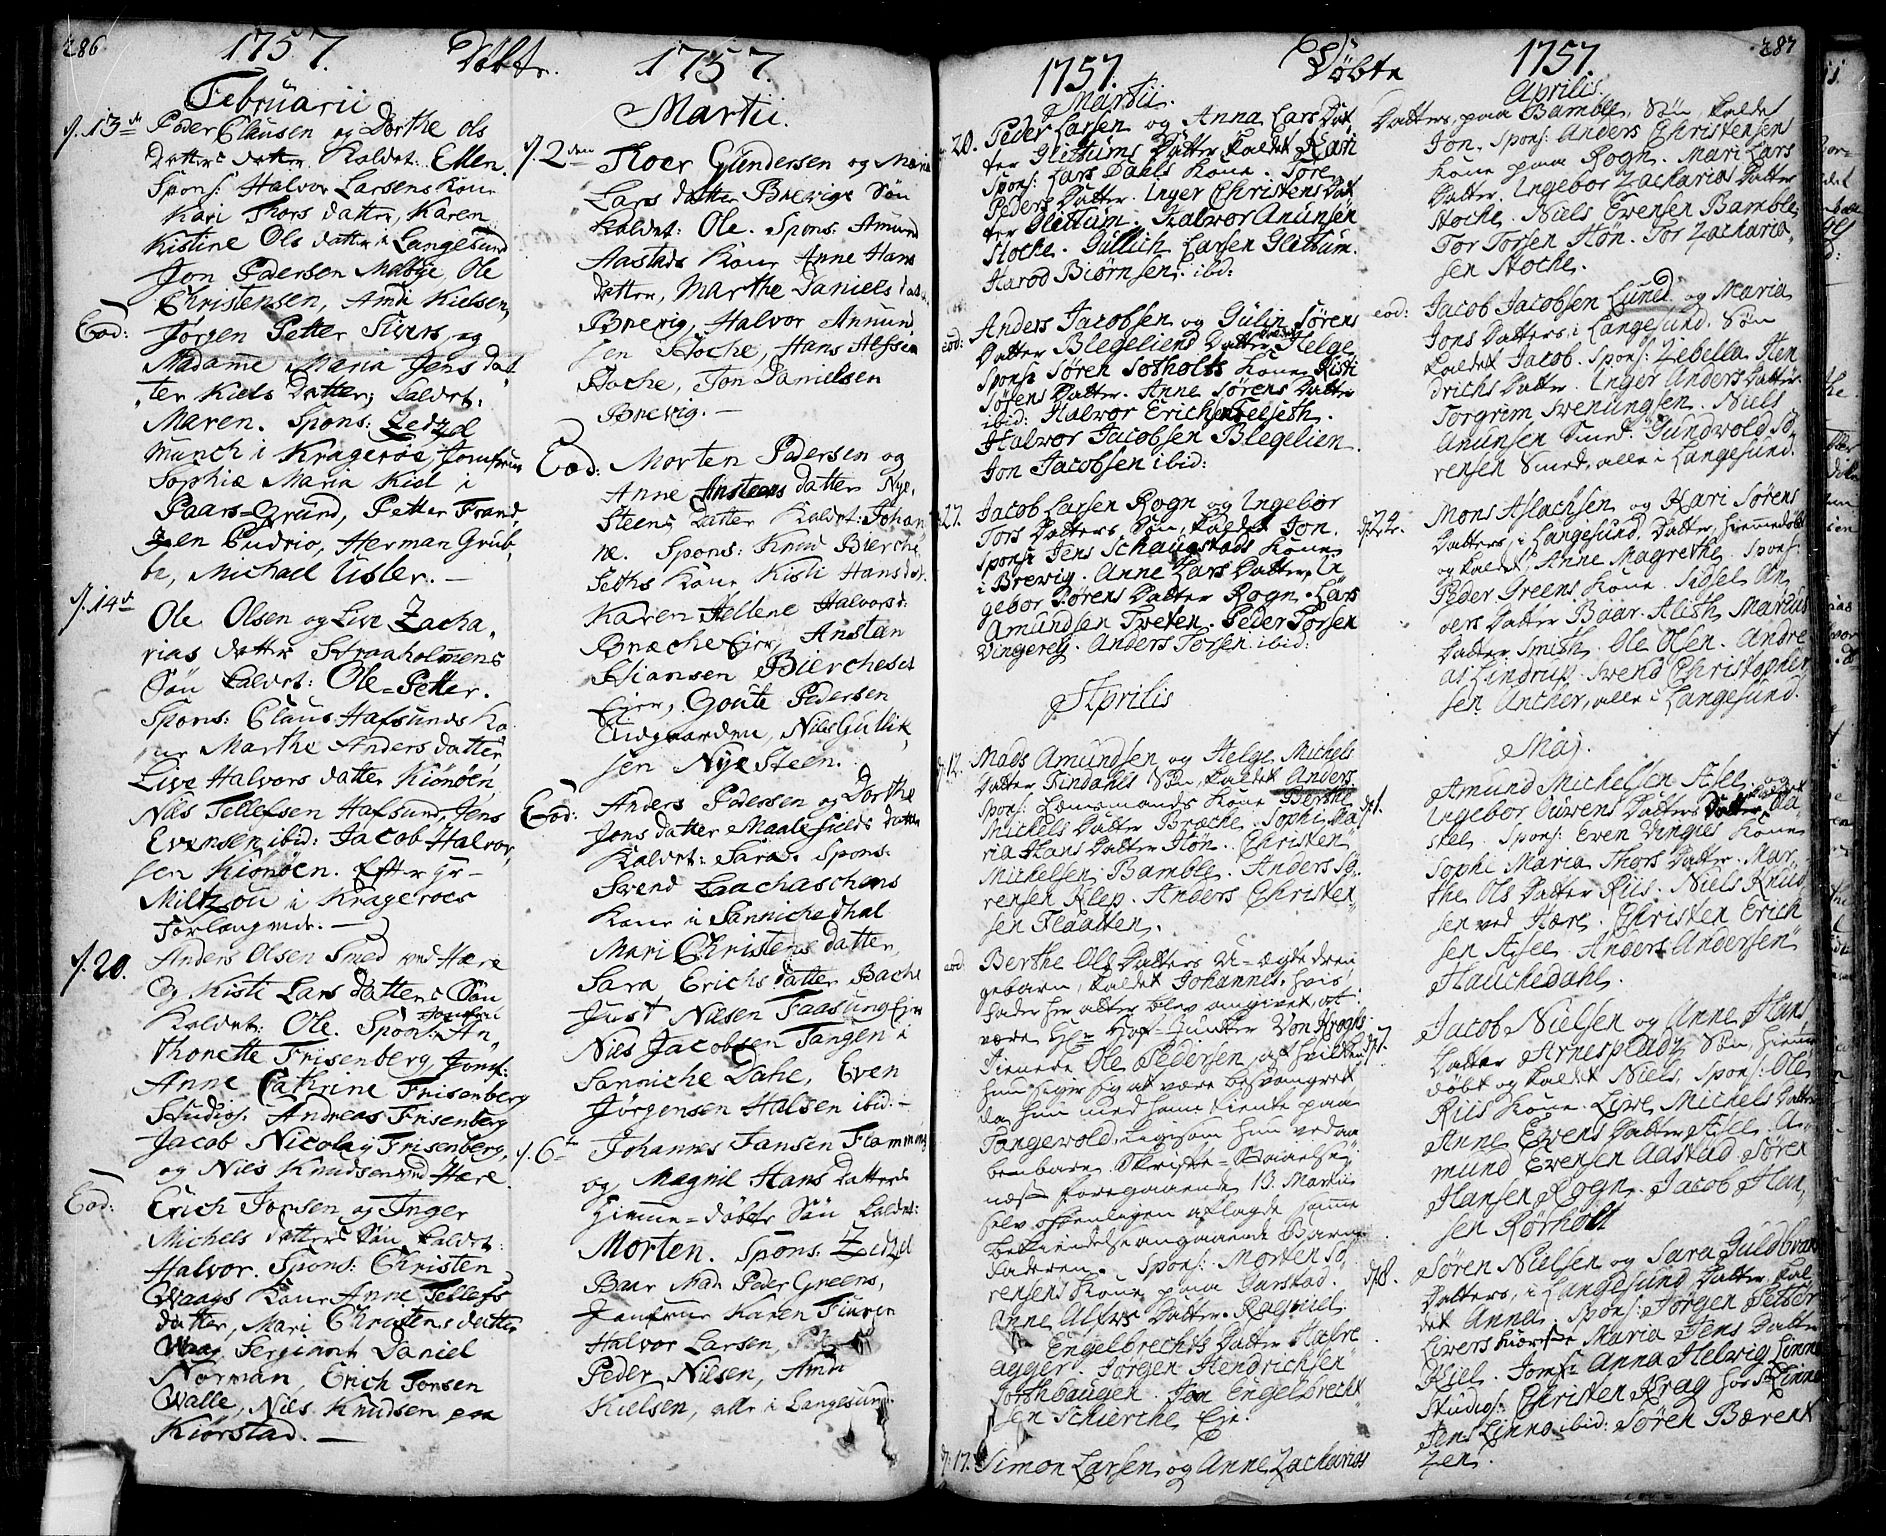 286
1757. Döbte. 1757.
Februarii
d. 13de Peder Clausen og Dorthe Ols
Datters datter Kaldet: Ellen.
Spons: Halvor Larsens Kone
Kari Thors datter, Karen
Kistine Ols datter i Langesund
Jon Pedersen Ole
Christensen, Amdi Kielsen,
Eod: Jørgen Petter Sivers, og
Madame Maria Jens dat
ter Kiels Datter, kaldet:
Maren. Spons: Zedzel
Munch i Krageröe, Jomfrue
Sophie Maria Kiel i
Paars-Grund, Petter Frand
zen Pudrio, Herman Grub
be, Michael Usler. —
d. 14de Ole Olsen og Live Zacha,
rias datters Straaholmens
Søn kaldet: Ole-Petter.
Spons: Claus Hafsunds Ko
ne Marthe Anders datter,
Live Halvors datter Kiönöen,
Niels Tellefsen Hafsund, Jens
Evensen ibid: Jacob Halvor,
sen Kiönöen. Efter Hr-
Miltzou i Krageroes
Forlangende. —
d. 20. Anders Olsen Smed ved Hære
og Kisti Lars Datters Søn
Kaldet: Ole. Spons: Jomfrue An,
thonette Frisenberg, Jomf:
Anne Cathrine Frisenberg
Studios. Andreas Frisenberg
Jacob Nicolay Frisenberg,
og Niels Knudsen ved Hære.
Eod: Erich Jonsen og Inger
Michels datters Søn kaldet:
Halvor. Spons: Christen
Waags Kone Anne Tellefs
datter, Mari Christens datter
Waag Sergiant Daniel
Norman, Erich Tonsen
Walle, Niels Knudsen paa
Kiørstad. —
Martii.
d. 2den Thoer Gundersen og Maria
Lars datter Brevigs Søn
kaldet: Ole. Spons: Amund
Aastads Kone Anne Hans
datter, Marthe Daniels dat
Brevig, Halvor Annund
sen Stoche, Hans Alfsen
Stoche, Jon Danielsen
Brevig. —
Eod: Morten Pedersen og
Anne Ansteens datter Nye,
Steens Datter kaldet: Johan
ne. Spons: Knud Bierche
Seths Kone Kisti Hans dat.
Karen Hellene Halvors d.
Bræche Ejer, Anstan
Stiansen Biercheset
Ejer, Goute Pedersen
Eidgaarden, Niels Gullik,
sen Nye Steen.
Eod: Anders Pedersen og Dorthe
Jons datter Maale Gields datter
kaldet: Sara. Spons:
Svend Laachaschens
Kone i Sannichedhal
Mari Christens datter,
Sara Erichs datter Bache
Just Nielsen Faasung Ejer
Niels Jacobsen Tangen i
Sanniche Dahl, Even
Jørgensen Halsen ibid: —
d. 6te Johannes Jansen Flamming
og Magnil Hans Datters
Hiemme-døbte Søn kaldet:
Morten. Spons. Zedzel
Baar Mad: Peder Greens,
Jomfrue Karen Fiuren
Halvor Larsen,
Peder Nielsen, Amdi
Kielsen, alle i Langesund.
1757. Döbte 1757 287
Martii.
20. Peder Larsen og Anna Lars Dat
ter Glittums Datter kaldet Kari
Spons: Lars Dahls Kone. Tore
Peders Datter. Inger Christens Dat
ter Glittum. Halvor Anunsen
Stoche. Gullich Larsen Glittum.
Harod Biørnsen. ibid:
eod: Anders Jacobsen og Gulin Sørens
Datter Blegeliens Datter kaldet Helge
Spons: Søren Sotholts Kone Kisti
Sørens Datter. Anne Sørens Datter
ibid: Halvor Erichsen Felseth.
Halvor Jacobsen Blegelien.
Jon Jacobsen ibid:
27. Jacob Larsen Rogn og Ingebor
Tors Datters Søn, kaldet Jon.
Spons: Jens Schaugstads Kone
i Brevig. Anne Lars Datter, In
gebor Sørens Datter Rogn. Lars
Amundsen Tveten. Peder Torsen
Vingereig. Anders Torsen ibid:
Aprilis
d. 12. Mads Amundsen og Helge Michels
Datter Findahls Søn, kaldet Anders
Spons: Lensmands Kone Berthe
Michels Datter Bræche. Sophi Ma
ria Hans Datter Høn. Christen
Michelsen Bamble. Anders Sø,
rensen Klep. Anders Christen,
sen Flaatten.
eod Berthe Ols Datters U-ægte dreng
gebarn, kaldet Johannes, hvis
fader her atter blev angivet, at
være Hr Hof-Junker Von Kroghs
Tienere Ole Pedersen, af hvilken
hun siger sig at være besvangret
da hun med ham tiente paa
Tangewold, ligesom hun ved aa
benbare Skrifte-
næst foregaaende 13. Martii
selv offentligen aflagde samme
bekiendelse angaaende Barne
faderen. Spons: Morten Sø
rensens Kone paa Aarstad.
Anne Alfers Datter. Ragnild
Engelbrechts Datter Hafre
agger. Jørgen Hendrichsen
Jon Engelbrecht
sen Schierche Eje.
d. 17. Simon Larsen og Anne Zacharias
Aprilis.
Datters, paa Bamble, Søn, kaldet
Jon. Spons: Anders Christensens
Kone paa Rogn. Mari Lars
Datter. Ingebor Zacharias Datter
Stoche. Niels Evensen Bamble,
Tor Torsen Høn. Tor Zacharia,
sen Stoche.
eod: Jacob Jacobsen Lund og Maria
Jons Datters, i Langesund, Søn
kaldet Jacob. Spons: Zebella Hen
drichs Datter. Inger Anders Datter.
Torgrim Svenungsen. Niels
Anunsen Smed. Gundwold Sø
rensen Smed, alle i Langesund.
d. 22. Mons Aslachsen og Kari Sørens
Datters, i Langesund, Datter, hiemmedøbt
og kaldet, Anne Magrethe. Spons:
Peder Greens Kone. Sigsel An
ders Datter Baar. Alisth Marius
Datter Smith. Ole Olsen. Andre
as Lindrup. Svend Christopher
sen Ancher, alle i Langesund.
Maj.
d. 1. Amund Michelsen Assee og
Ingebor Ouvens Datters Datter, kaldet Kid
stel. Spons: Even Vingies Kone
Sophe Maria Thors Datter. Mar,
the Ols Datter Riis. Niels Knud
sen ved Hære. Christen Erich
sen Assee. Anders Andersen
Hauchedahl.
d. 7. Jacob Nielsen og Anne Hans
Datter Arnesplads, Søn, hiemme
døbt og kaldet Niels, Spons: Ole
Riis Kone. Live Michels Datter
Anne Evens Datter Assee. A,
mund Evensen Aastad. Søren
Hansen Rogn. Jacob Han,
sen Rørholt
d. 8. Søren Nielsen og Sara Guldbran
Datters, i Langesund, Datter, kal
det Anna. Spons: Jørgen Petter
Livers Hustrue Maria Jens Datter
Kiel. Jomf: Anna Helvig Linno
Studios: Christen Krag hos
Jens Linno ibid: Søren Bærent
zen.